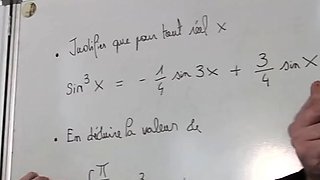 • Justifier que pour tout réel x
sin³x = - 1/4 sin 3x + 3/4 sin x
• En déduire la valeur de
∫ π